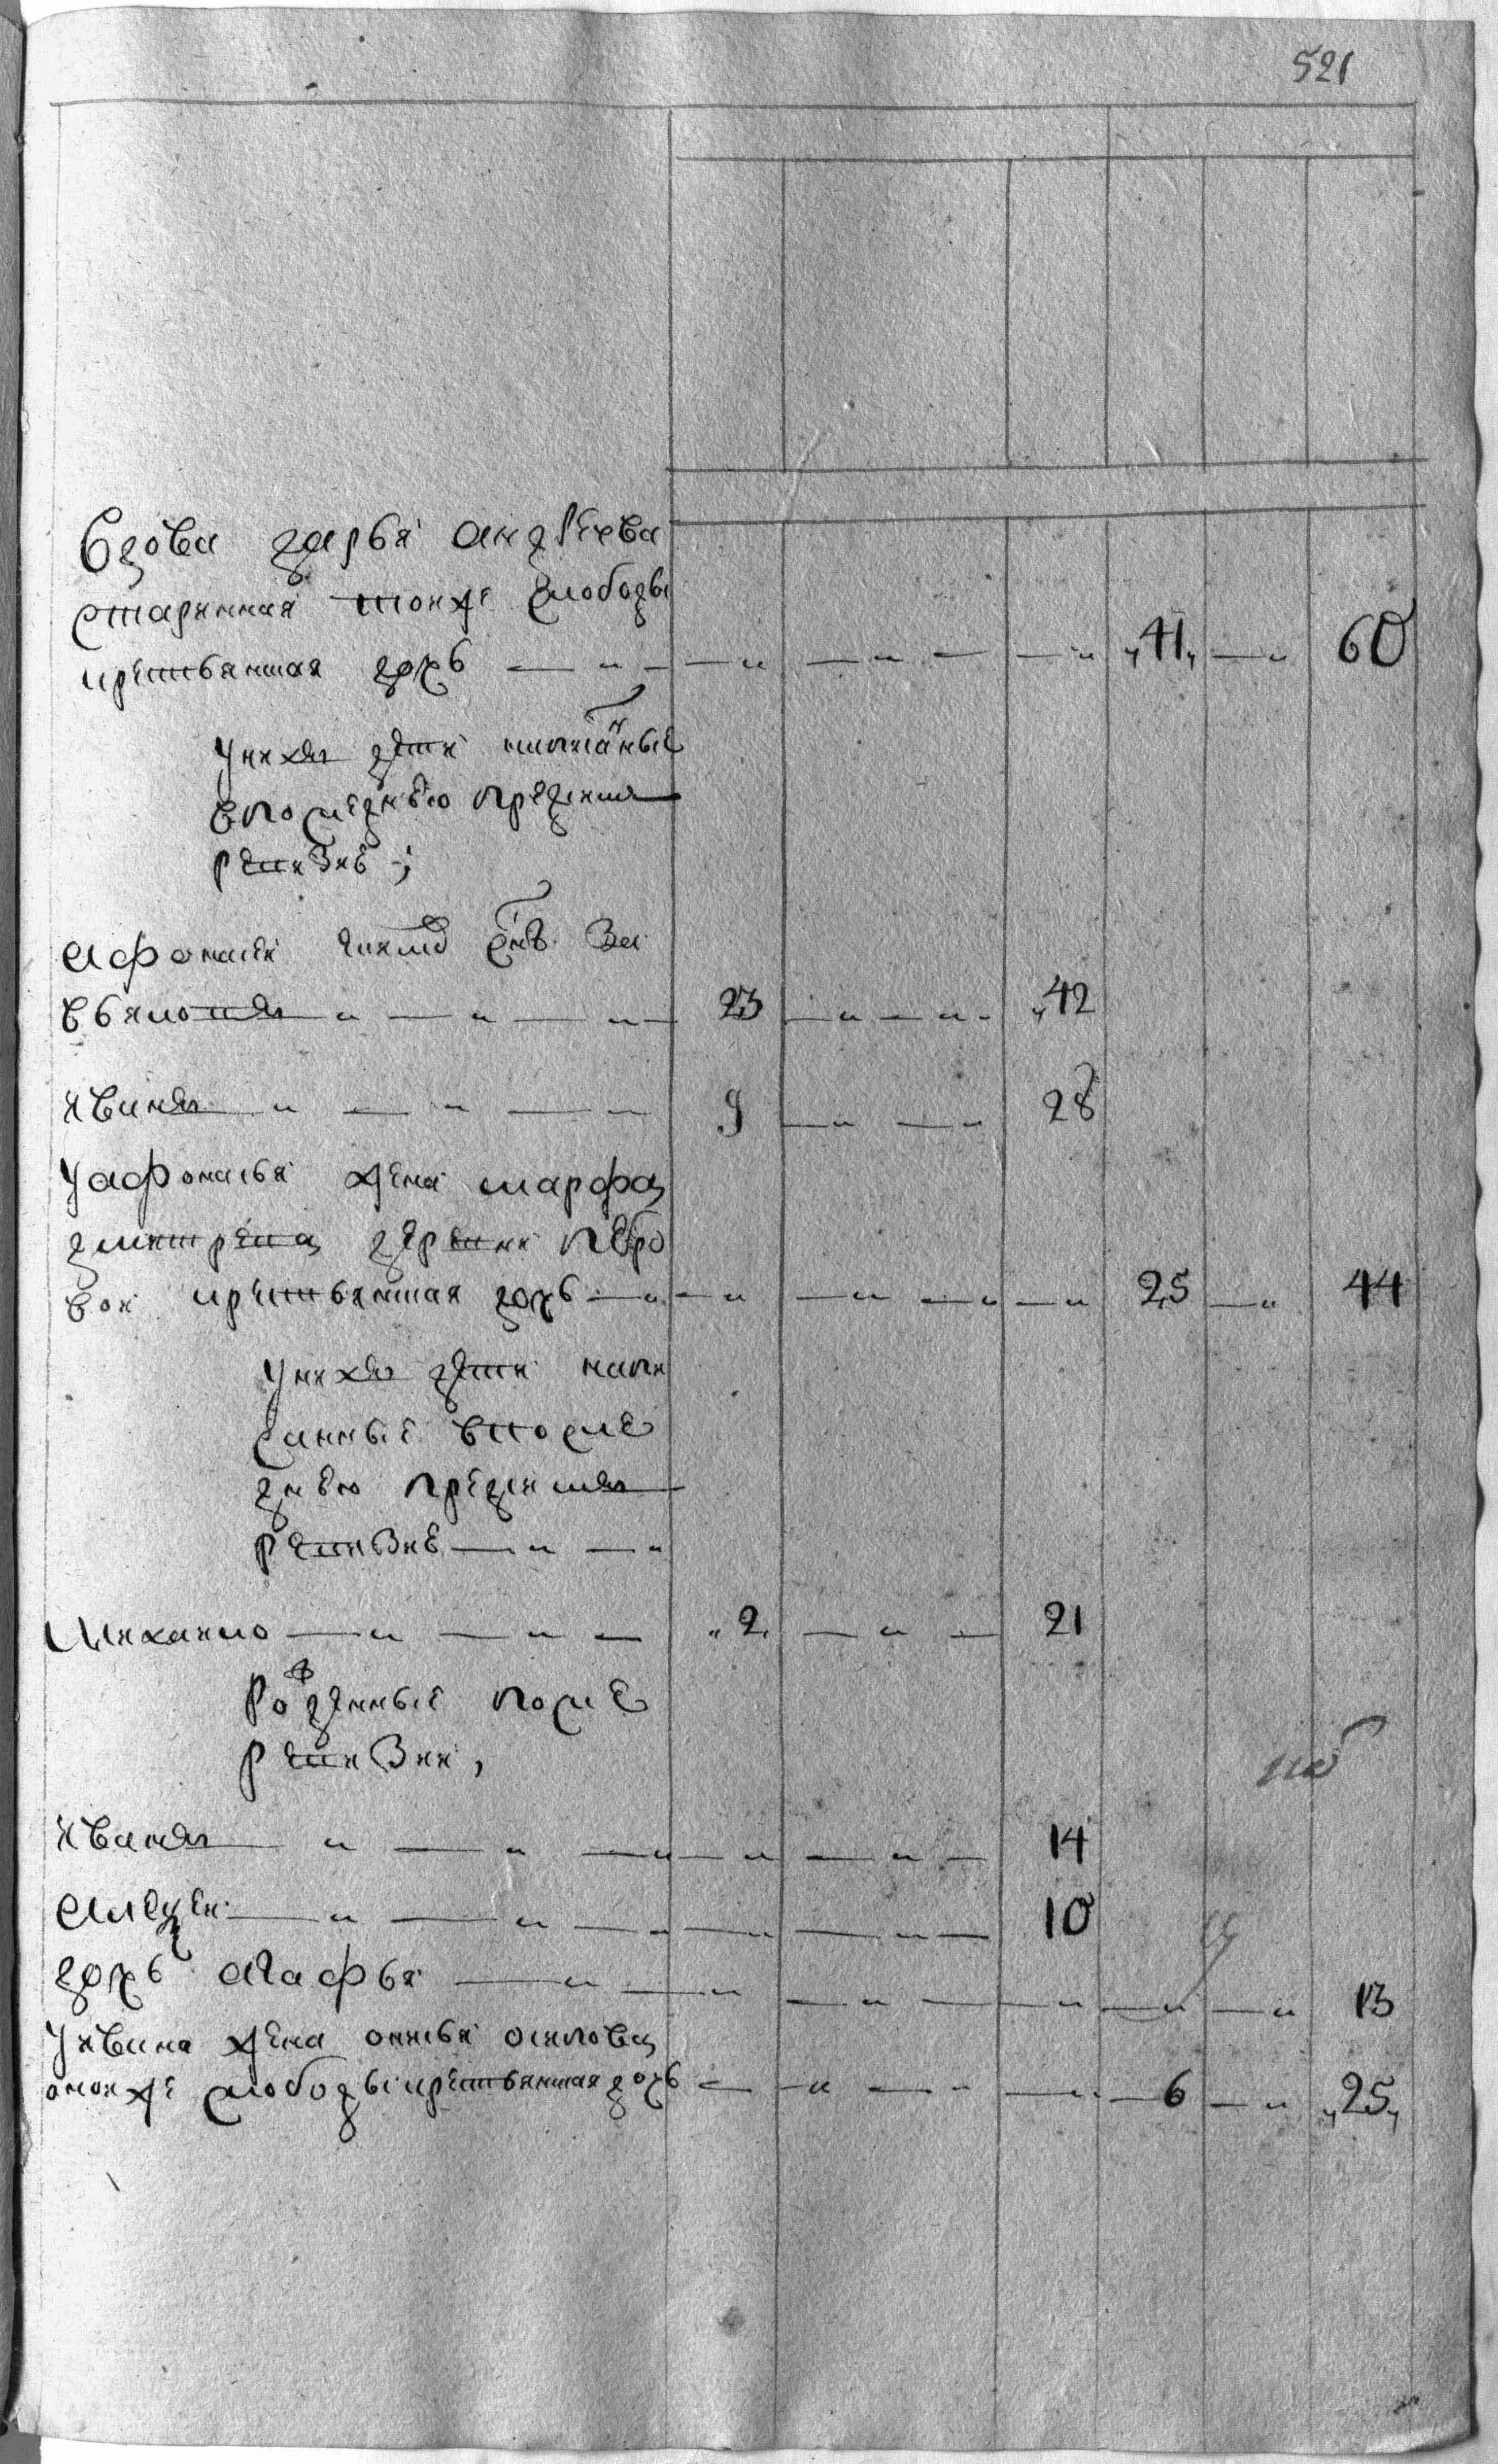 521
Вдова дарья андреева
старинная тоиже слободы
крестьянская дочь — „ — „ — „ — — „ 41 — „ 60
уних дети написаные
впоследнею предидш
ревизие
афонасеи
23 — „ — „ 42
иван — „ — „ — „ 9 — „ — „ 28
уафонасья жена марфа
дмитрева деревни
вои крестьянская дочь — „ — „ — „ — „ — „ 25 — „ 44
уних дети напи
санные впосле
днею предидш
ревизие — „ — „
михаило — „ — „ — „ 2 — „ — 21
рожденные после
ревизии,
иван — „ — „ — „ — „ — „ — 14
алексеи — „ — „ — „ — „ — 10
дочь агафья — „ — „ — „ — „ — „ — „ 13
уивана жена осипова
слободы крестьянская дочь — „ — „ — „ — 6 — „ 25